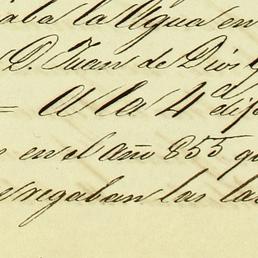 aba la Agua en
D. Juan de Dios y
= A la 4ª dife
en el año 855 qu
regaban las la